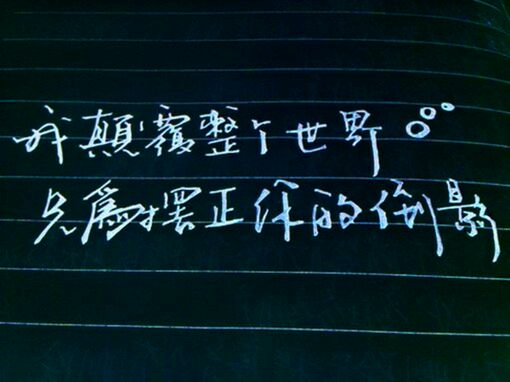 我顛覆整个世界。。。
只為摆正你的倒影